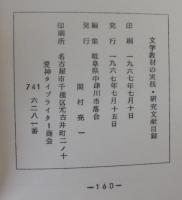 文学教材の実践・研究文献目録
印刷 一九六七年七月十日
発行 一九六七年七月十五日
編集 岐阜県中津川市落合
発行 岡村亮一
印刷所 名古屋市千種区元古井町二ノ十
愛神タイプライター商会
741 六二八一番
—160—